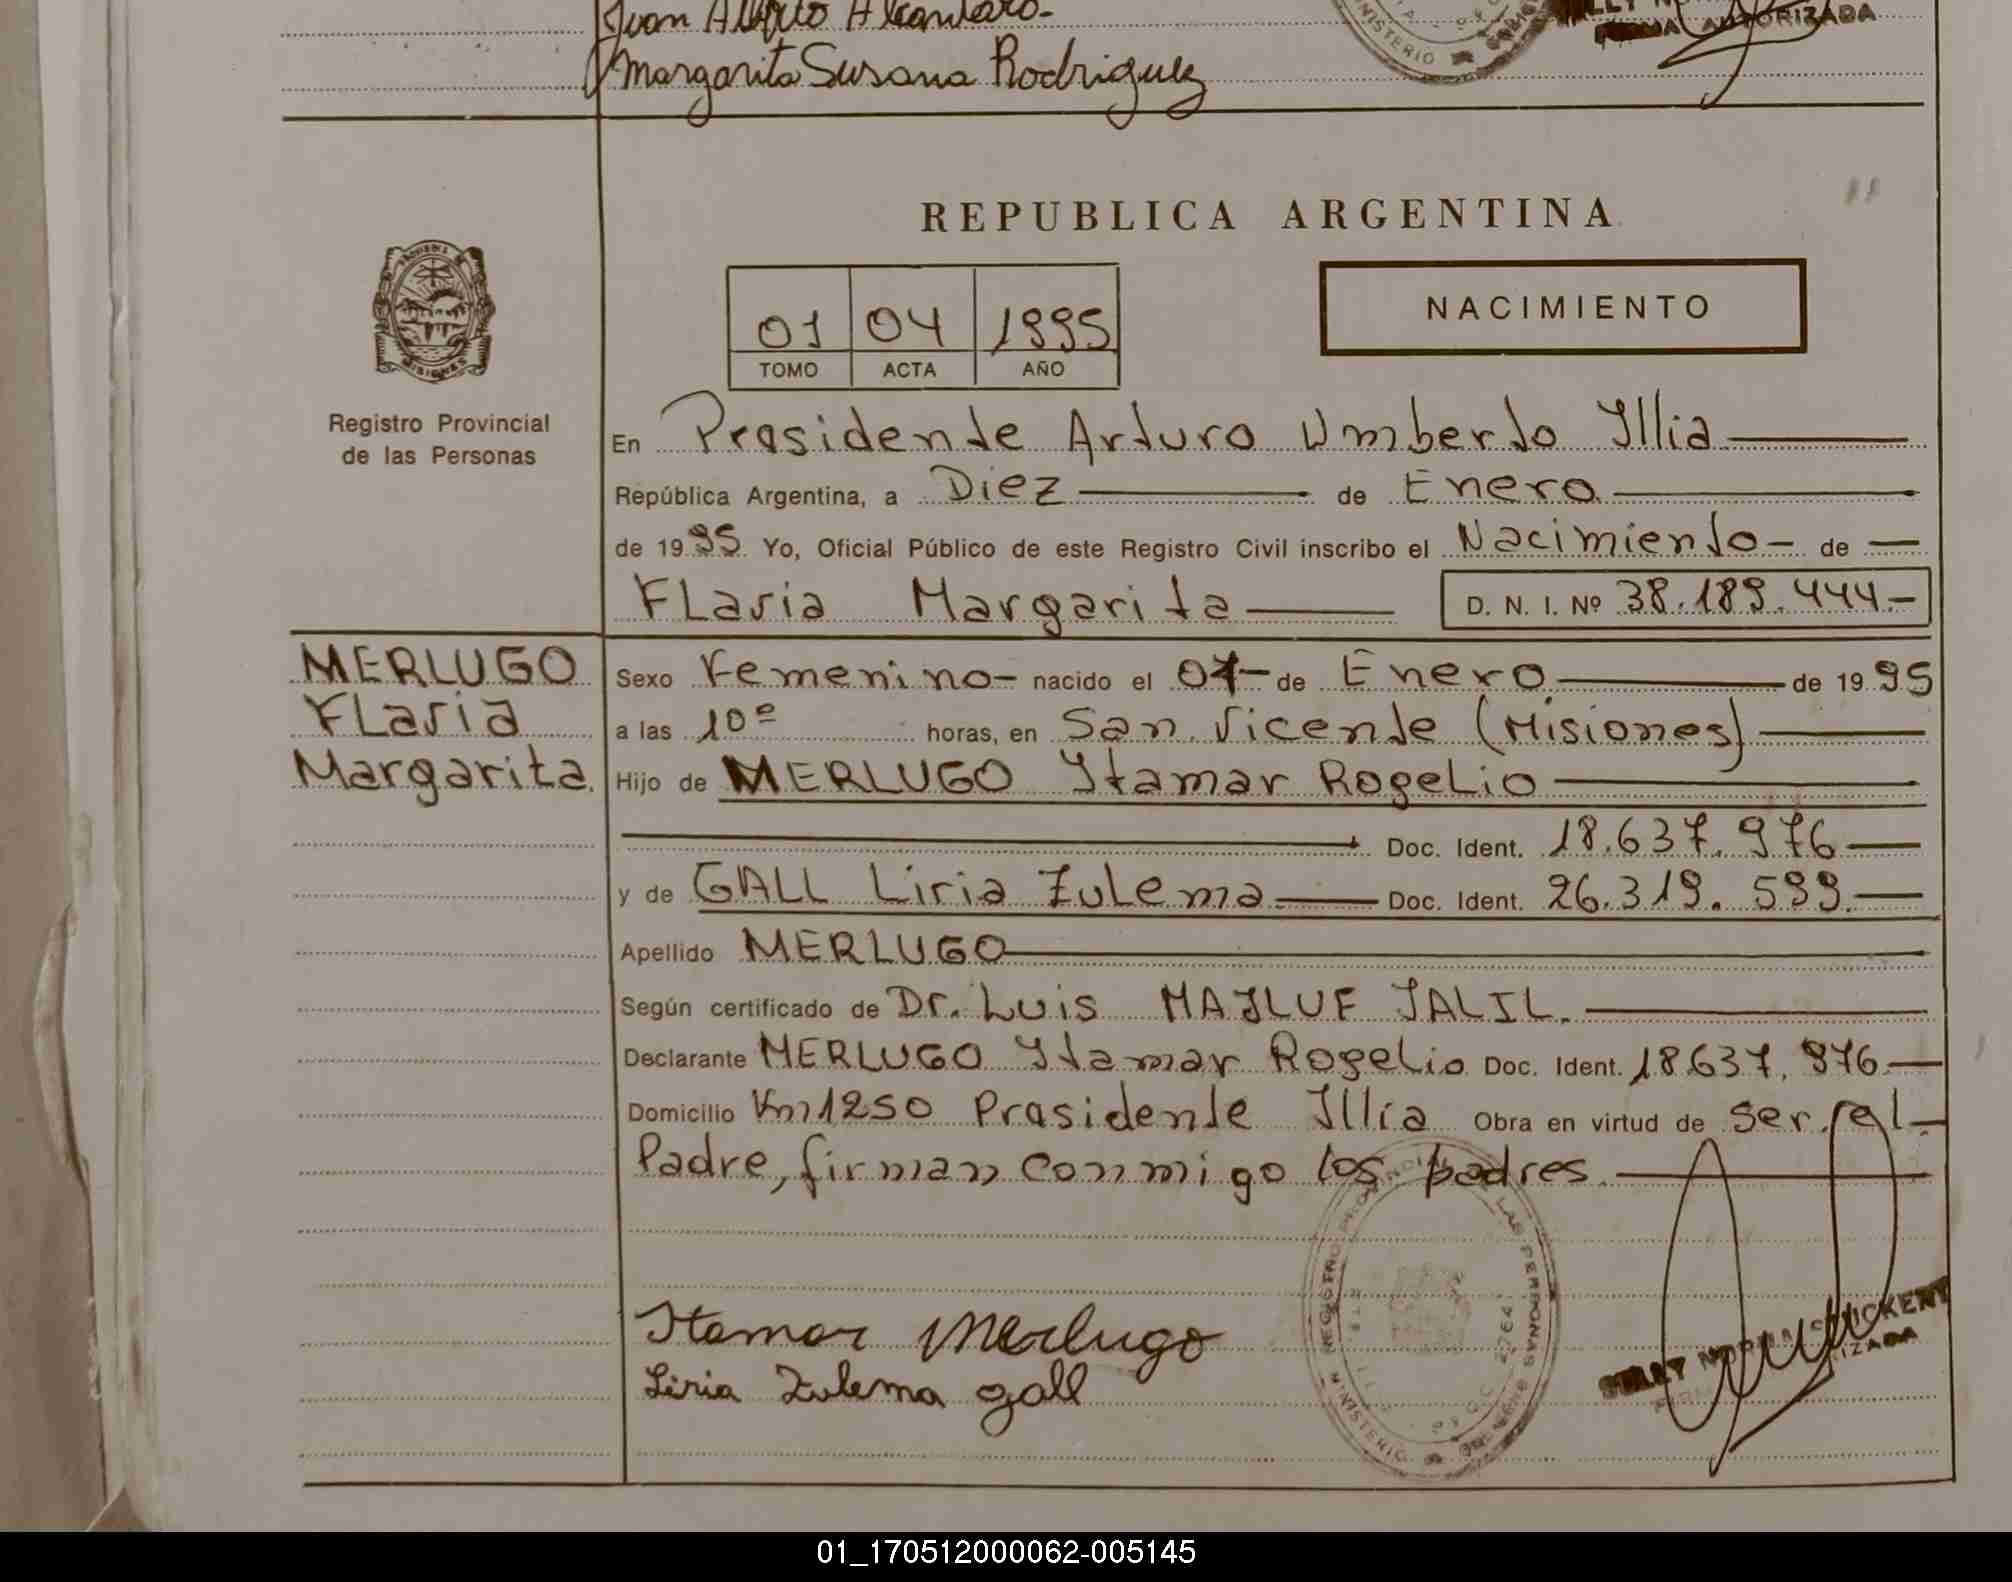 Juan Alberto Alcantaro-
FIRMA AUTORIZADA
MINISTERIO
Margarita Susana Rodriguez
REPUBLICA ARGENTINA
NACIMIENTO
01 04 1995
TOMO ACTA AÑO
MISIONES
Registro Provincial
de las Personas
En Presidente Arturo Umberto Illia
República Argentina, a Diez de Enero
de 1995 Yo, Oficial Público de este Registro Civil inscribo el Nacimiento - de
Flavia Margarita D. N. I. Nº 38.189.444.-
MERLUGO
Flavia
Margarita.
Sexo Femenino- nacido el 07- de Enero de 1995
a las 10º horas, en San Vicente (Misiones)
Hijo de MERLUGO Itamar Rogelio
Doc. Ident. 18.637.976
y de GALL Liria Zulema Doc. Ident. 26.319.599.
Apellido MERLUGO
Según certificado de Dr. Luis MAJLUF JALIL.
Declarante MERLUGO Itamar Rogelio Doc. Ident. 18.637.976
Domicilio Km 1250 Presidente Illia Obra en virtud de ser el
Padre, firman conmigo los padres.
Itamar Merlugo
Liria Zulema Gall
MINISTERIO REGISTRO PROVINCIAL DE LAS PERSONAS
01_170512000062-005145